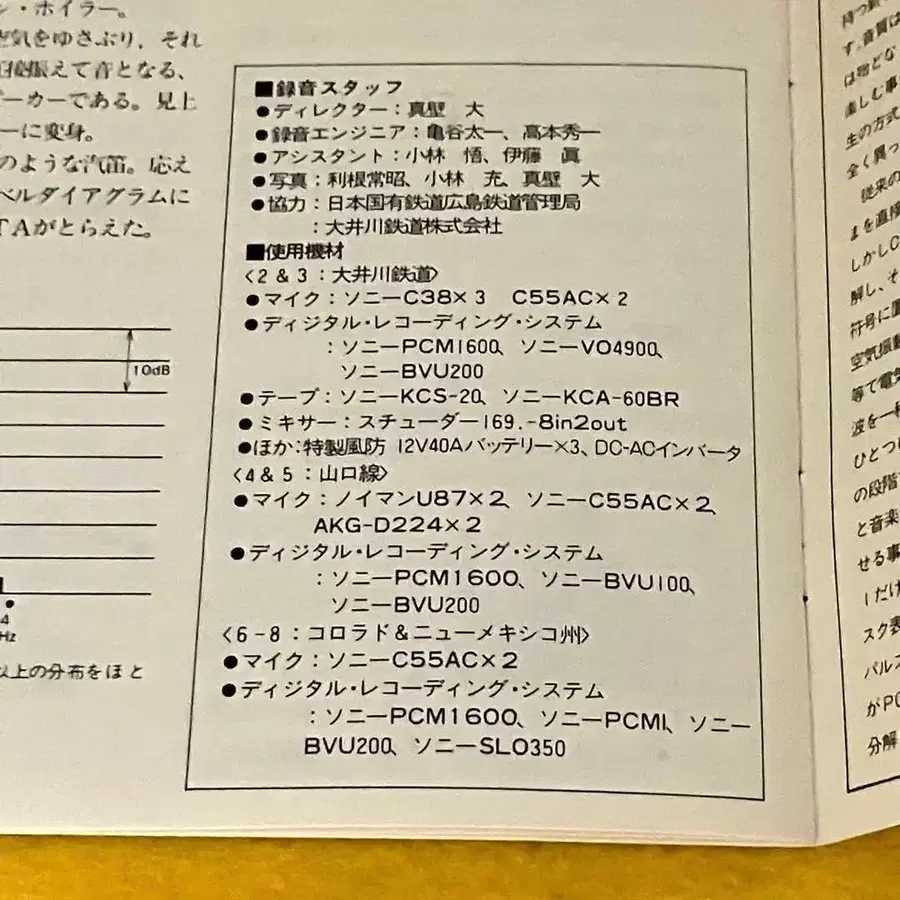 ン・ホイラー。
空気をゆさぶり、それ
直接振えて音となる、
ピーカーである。見上
ーに変身。
のような汽笛。応え
ベルダイアグラムに
TAがとらえた。
10dB
4
Hz
以上の分布をほと
■録音スタッフ
●ディレクター：真壁　大
●録音エンジニア：亀谷太一、高本秀一
●アシスタント：小林　悟、伊藤　眞
●写真：利根常昭、小林　充、真壁　大
●協力：日本国有鉄道広島鉄道管理局
：大井川鉄道株式会社
■使用機材
〈2＆3：大井川鉄道〉
●マイク：ソニーC38×3　C55AC×2
●ディジタル・レコーディング・システム
：ソニーPCM1600、ソニーVO4900、
ソニーBVU200
●テープ：ソニーKCS-20、ソニーKCA-60BR
●ミキサー：スチューダー169.-8in2out
●ほか：特製風防　12V40Aバッテリー×3、DC-ACインバータ
〈4＆5：山口線〉
●マイク：ノイマンU87×2、ソニーC55AC×2、
AKG-D224×2
●ディジタル・レコーディング・システム
：ソニーPCM1600、ソニーBVU100、
ソニーBVU200
〈6-8：コロラド＆ニューメキシコ州〉
●マイク：ソニーC55AC×2
●ディジタル・レコーディング・システム
：ソニーPCM1600、ソニーPCM1、ソニー
BVU200、ソニーSLO350
す。音質は
は殆どな
楽しむ事
生の方式
全く異っ
従来の
まを直接
しかしC
解し、そ
符号に置
空気振動
等で電気
波を一種
ひとつ
の段階
と音楽
せる事
1だけ
スク表
パルス
がPC
分解